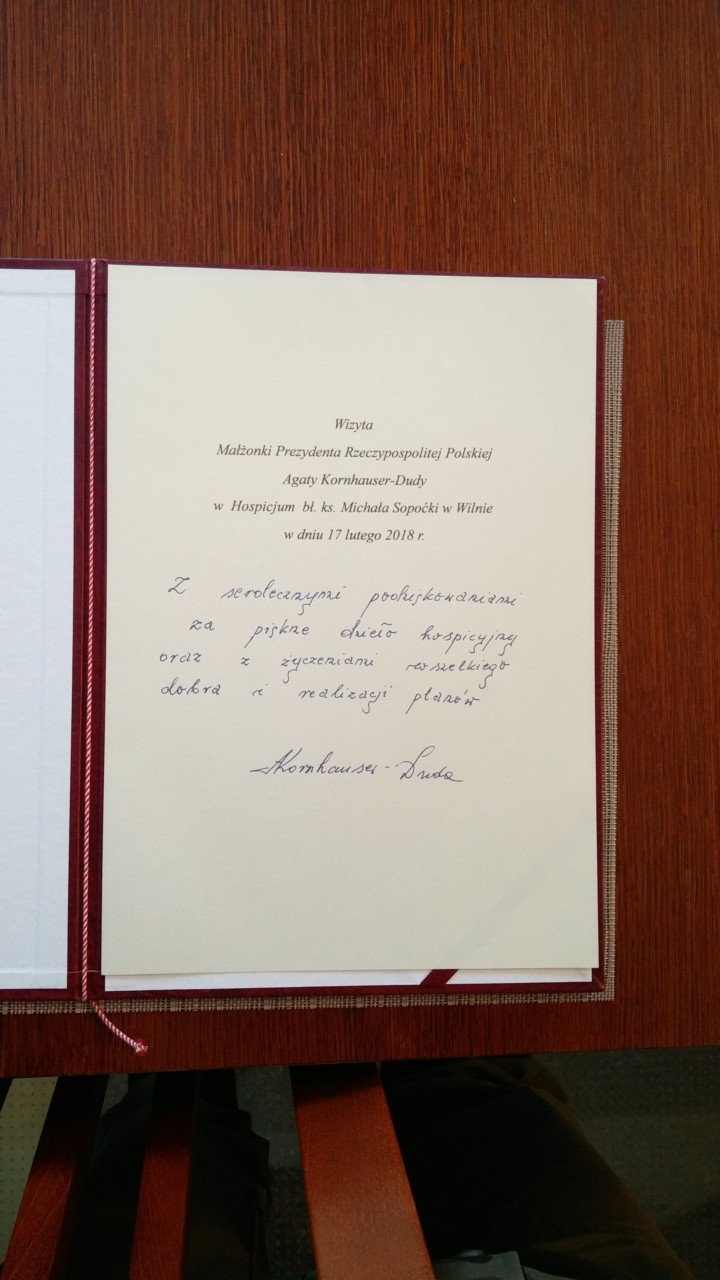 Wizyta
Małżonki Prezydenta Rzeczypospolitej Polskiej
Agaty Kornhauser-Dudy
w Hospicjum bł. ks. Michała Sopoćki w Wilnie
w dniu 17 lutego 2018 r.
Z serdecznymi podziękowaniami
za piękne dzieło hospicyjny
oraz z życzeniami wszelkiego
dobra i realizacji planów
AKornhauser-Duda